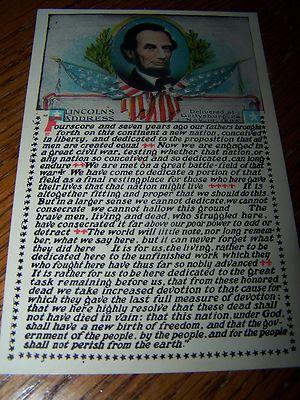 LINCOLN'S
ADDRESS
Delivered at
Gettysburg, Pa.
Nov. 19, 1863
Fourscore and seven years ago our fathers brought
forth on this continent a new nation, conceived
in liberty, and dedicated to the proposition that all
men are created equal ++ Now we are engaged in
a great civil war, testing whether that nation, or
any nation so conceived and so dedicated, can long
endure ++ We are met on a great battle-field of that
war + We have come to dedicate a portion of that
field as a final resting place for those who here gave
their lives that that nation might live ++++ It is
altogether fitting and proper that we should do this.
But in a larger sense we cannot dedicate, we cannot
consecrate we cannot hallow this ground The
brave men, living and dead, who struggled here,
have consecrated it far above our poor power to add or
detract ++ The world will little note, nor long remem-
ber, what we say here, but it can never forget what
they did here It is for us, the living, rather to be
dedicated here to the unfinished work which they
who fought here have thus far so nobly advanced ++
It is rather for us to be here dedicated to the great
task remaining before us, that from these honored
dead we take increased devotion to that cause for
which they gave the last full measure of devotion;
that we here highly resolve that these dead shall
not have died in vain: that this nation, under God,
shall have a new birth of freedom, and that the gov-
ernment of the people, by the people, and for the people
shall not perish from the earth.